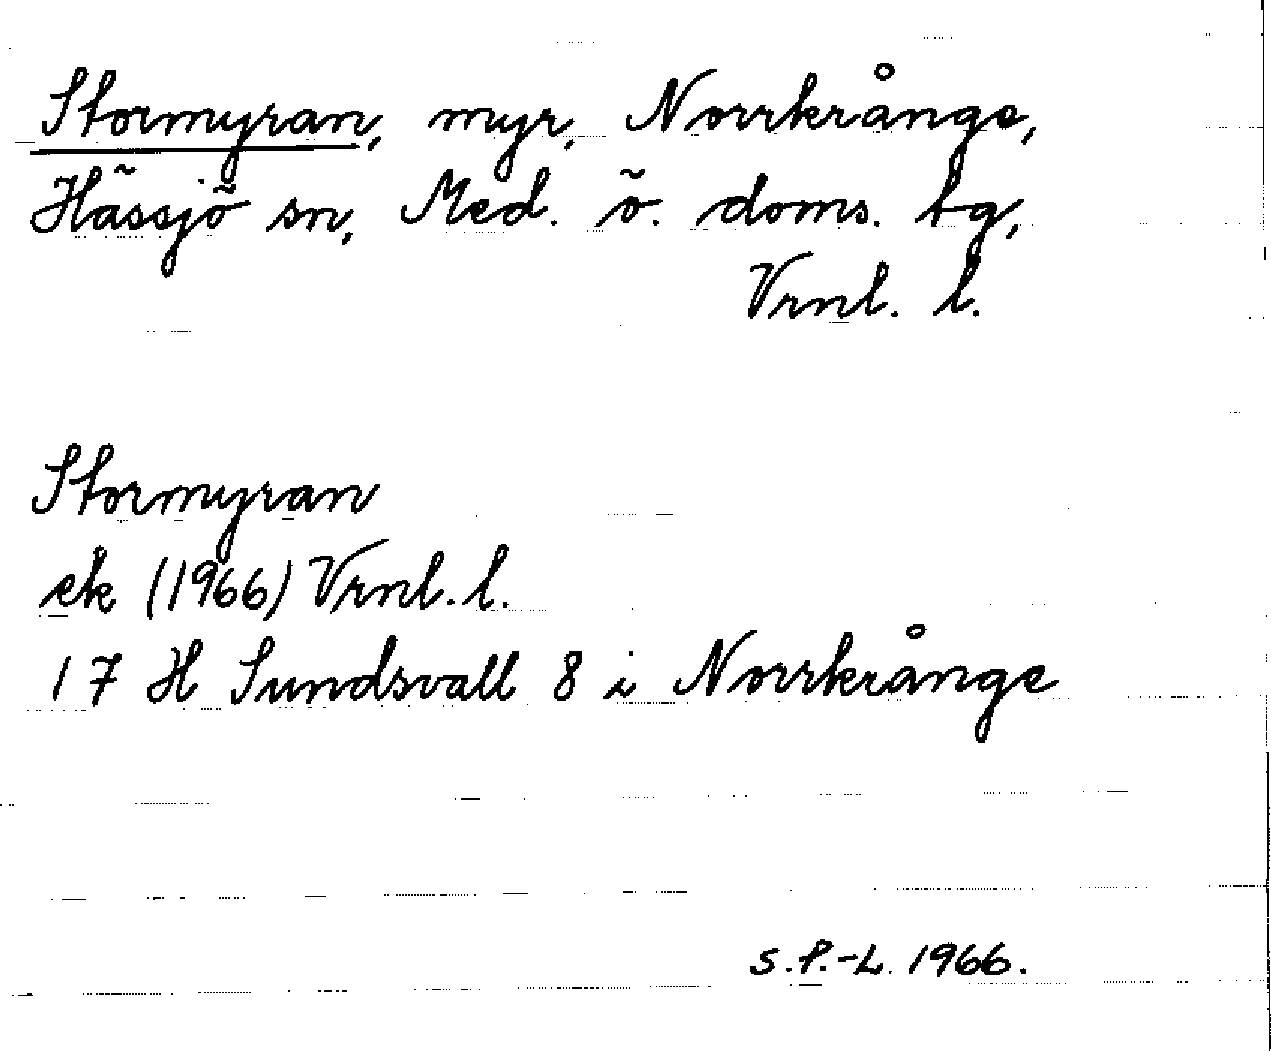 Stormyran, myr, Norrkrånge,
Hässjö sn, Med. ö. doms. tg,
Vrnl. l.
Stormyran
ek (1966) Vrnl. l.
17 H Sundsvall 8 i Norrkrånge
S.P.-L. 1966.